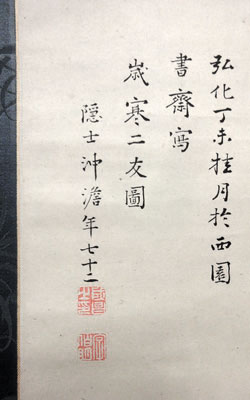 弘化丁未桂月於西園
書齋寫
歳寒二友圖
隠士沖澹年七十二